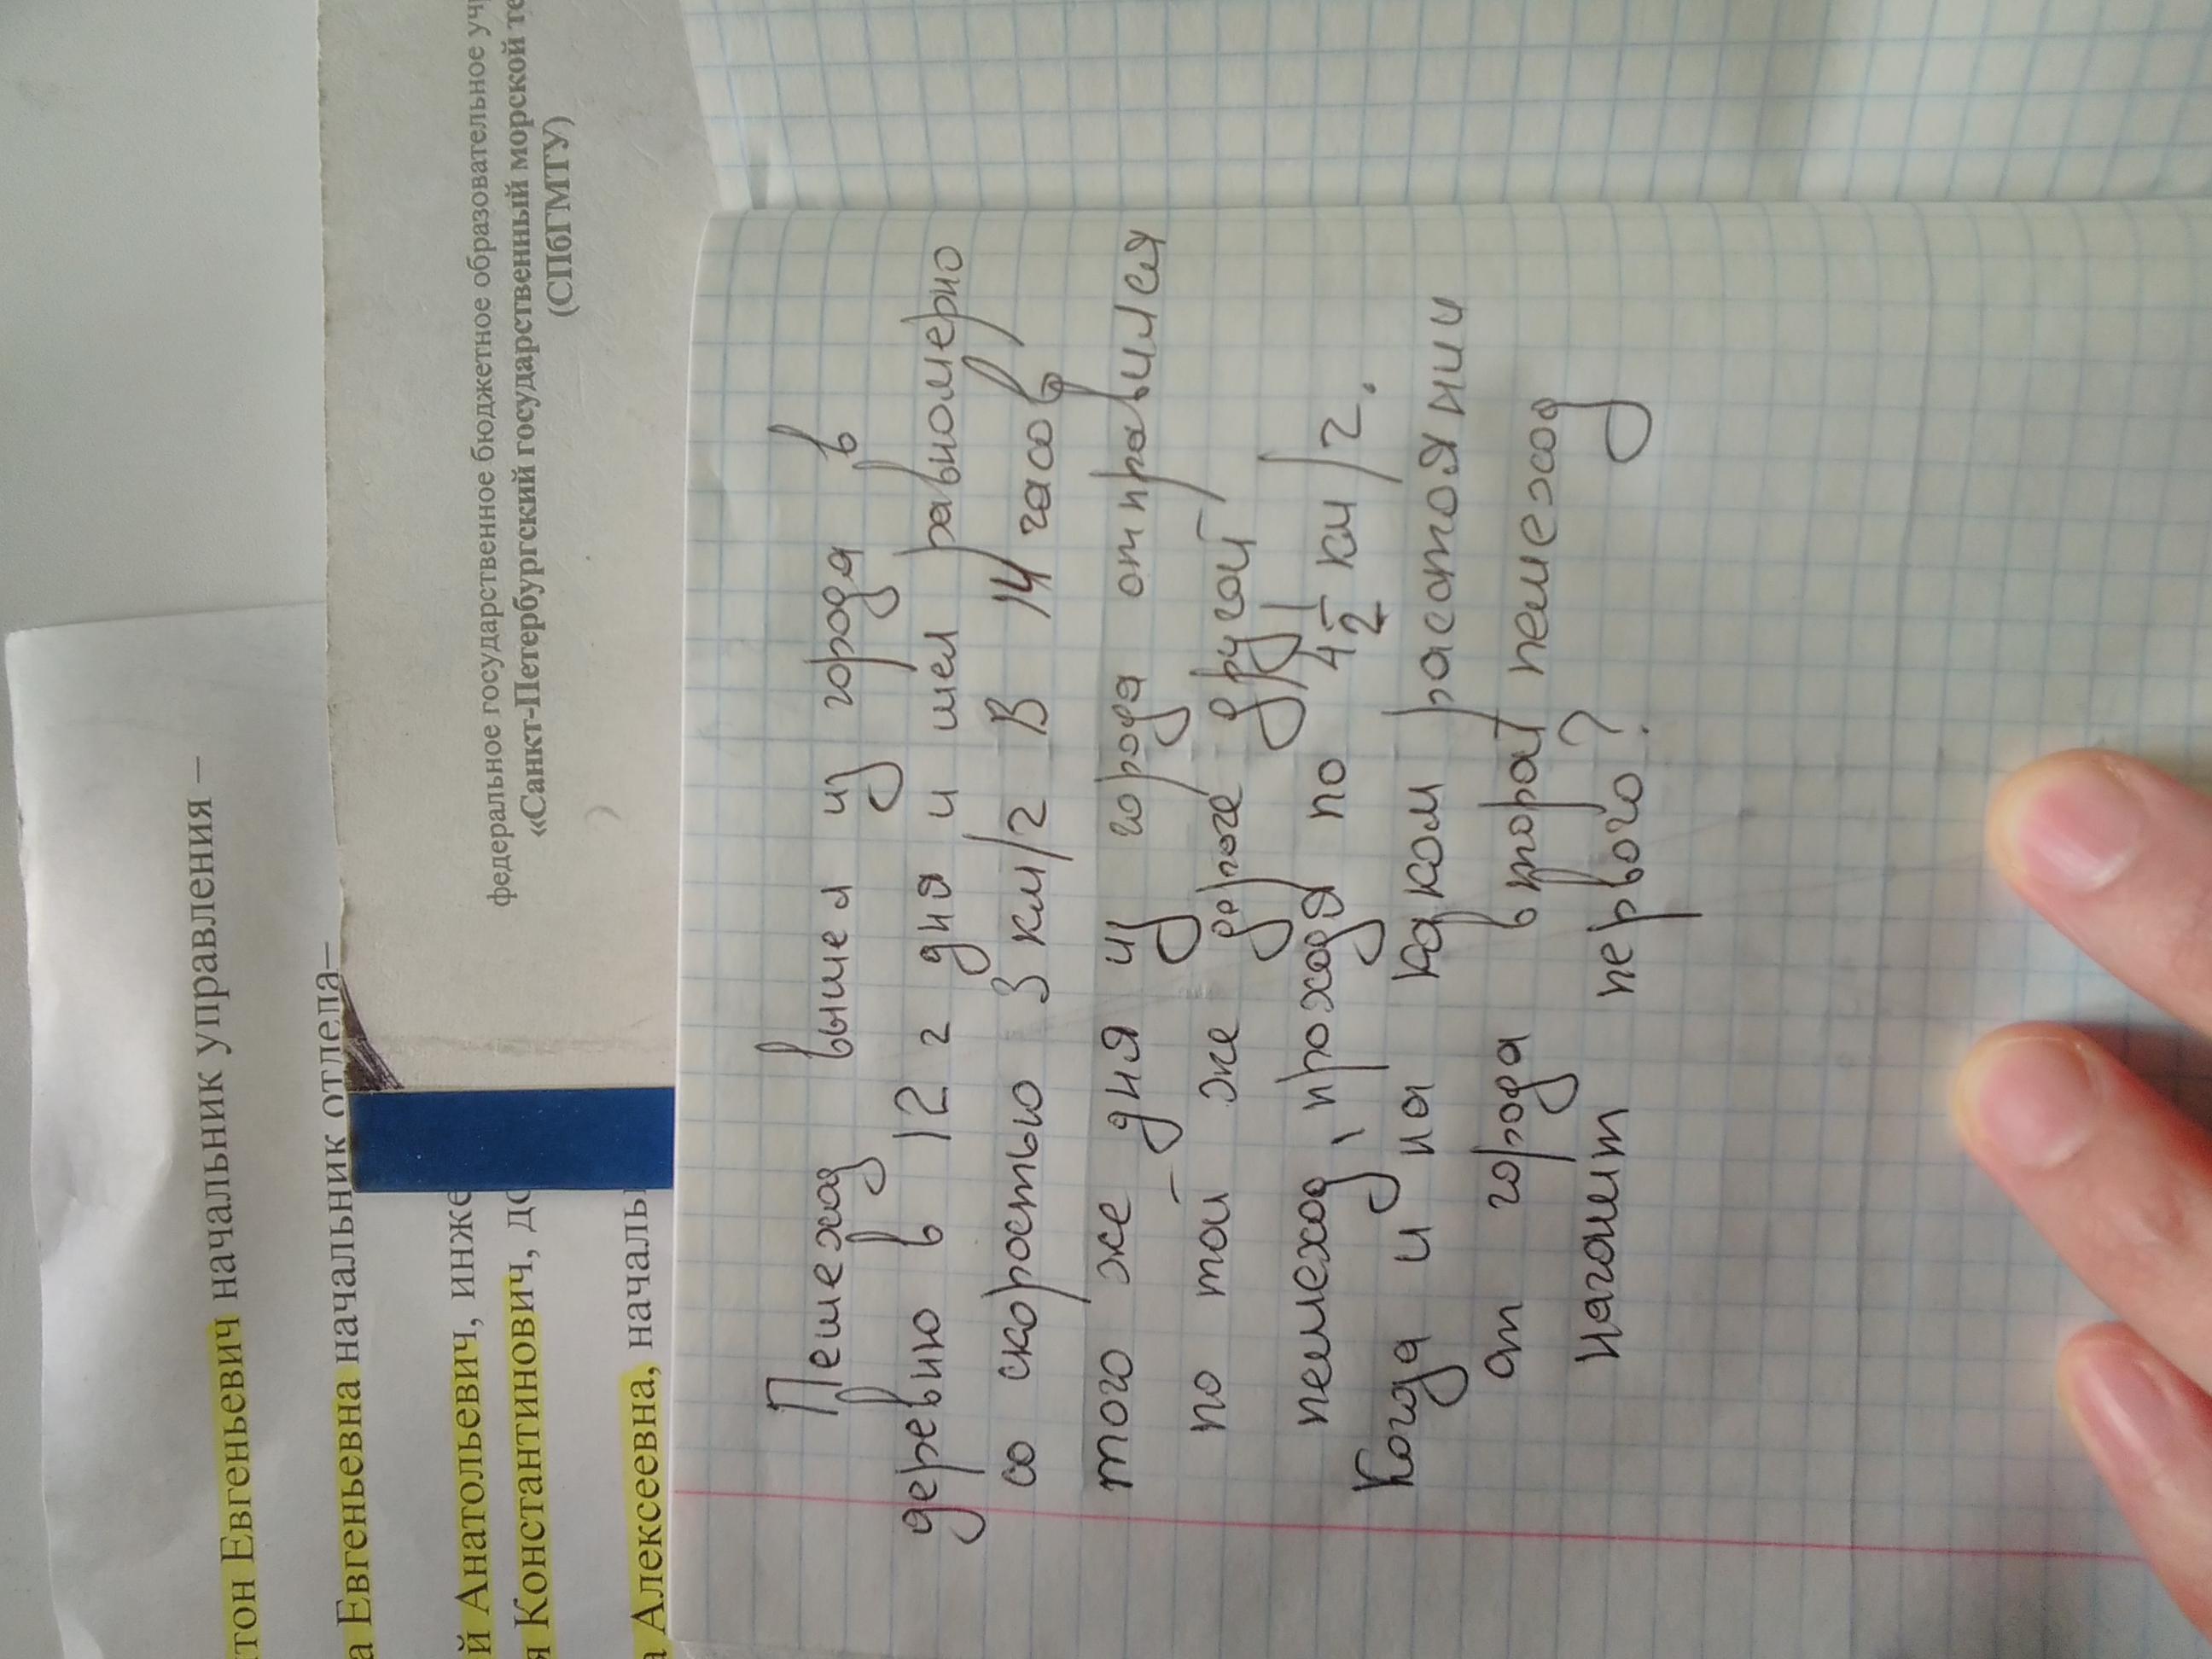 тон Евгеньевич начальник управления –
а Евгеньевна начальник отдела–
й Анатольевич, инже
я Константинович, до
а Алексеевна, началь
федеральное государственное бюджетное образовательное уч
«Санкт-Петербургский государственный морской те
(СПбГМТУ)
Пешеход вышел из города в
деревню в 12 г дня и шел равномерно
со скоростью 3 км/г В 14 часов
того же дня из города отправился
по той же дргоге другой
пешеход, проходя по 4 1/2 км/г.
Когда и на каком расстоянии
от города второй пешеход
нагонит первого?